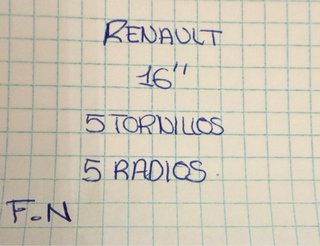 RENAULT
16"
5 TORNILLOS
5 RADIOS.
F.N